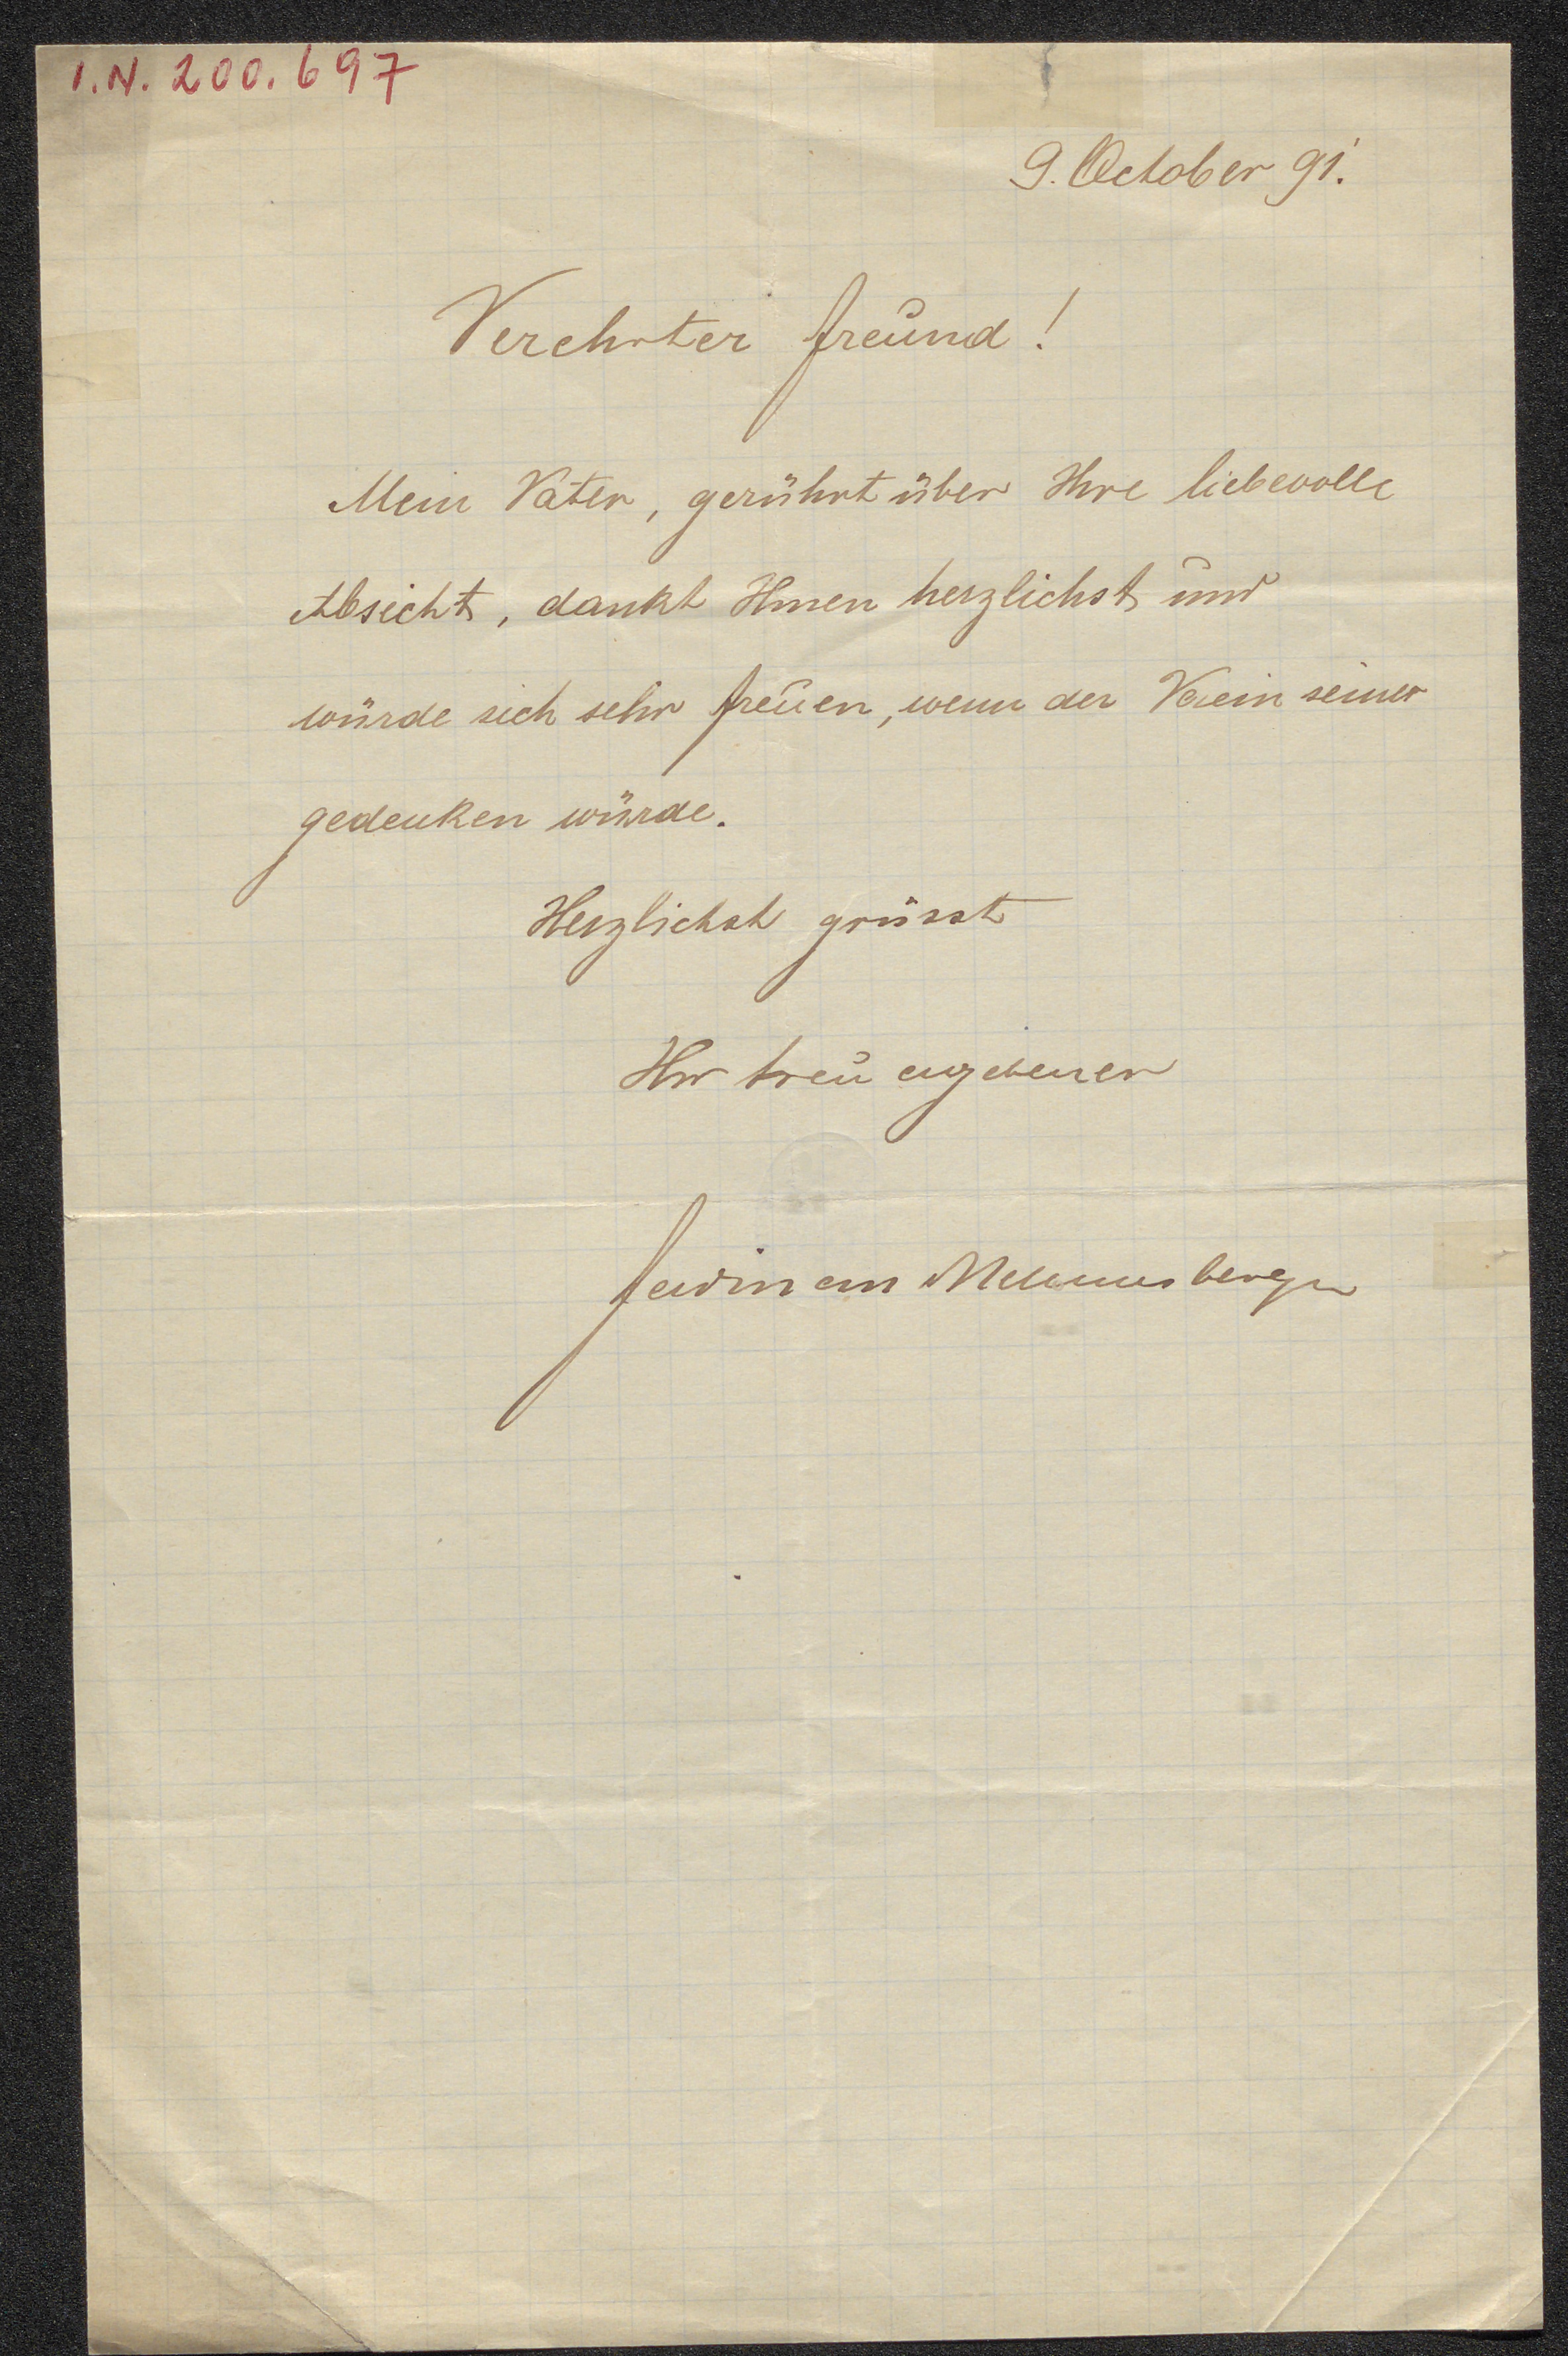 I.N. 200.697
9. October 91.
Verehrter Freund!
Mein Vater, gerührt über Ihre liebevolle
Absicht, dankt Ihnen herzlichst und
würde sich sehr freuen, wenn der Verein seiner
gedenken würde.
Herzlichst grüsst
Ihr treu ergebener